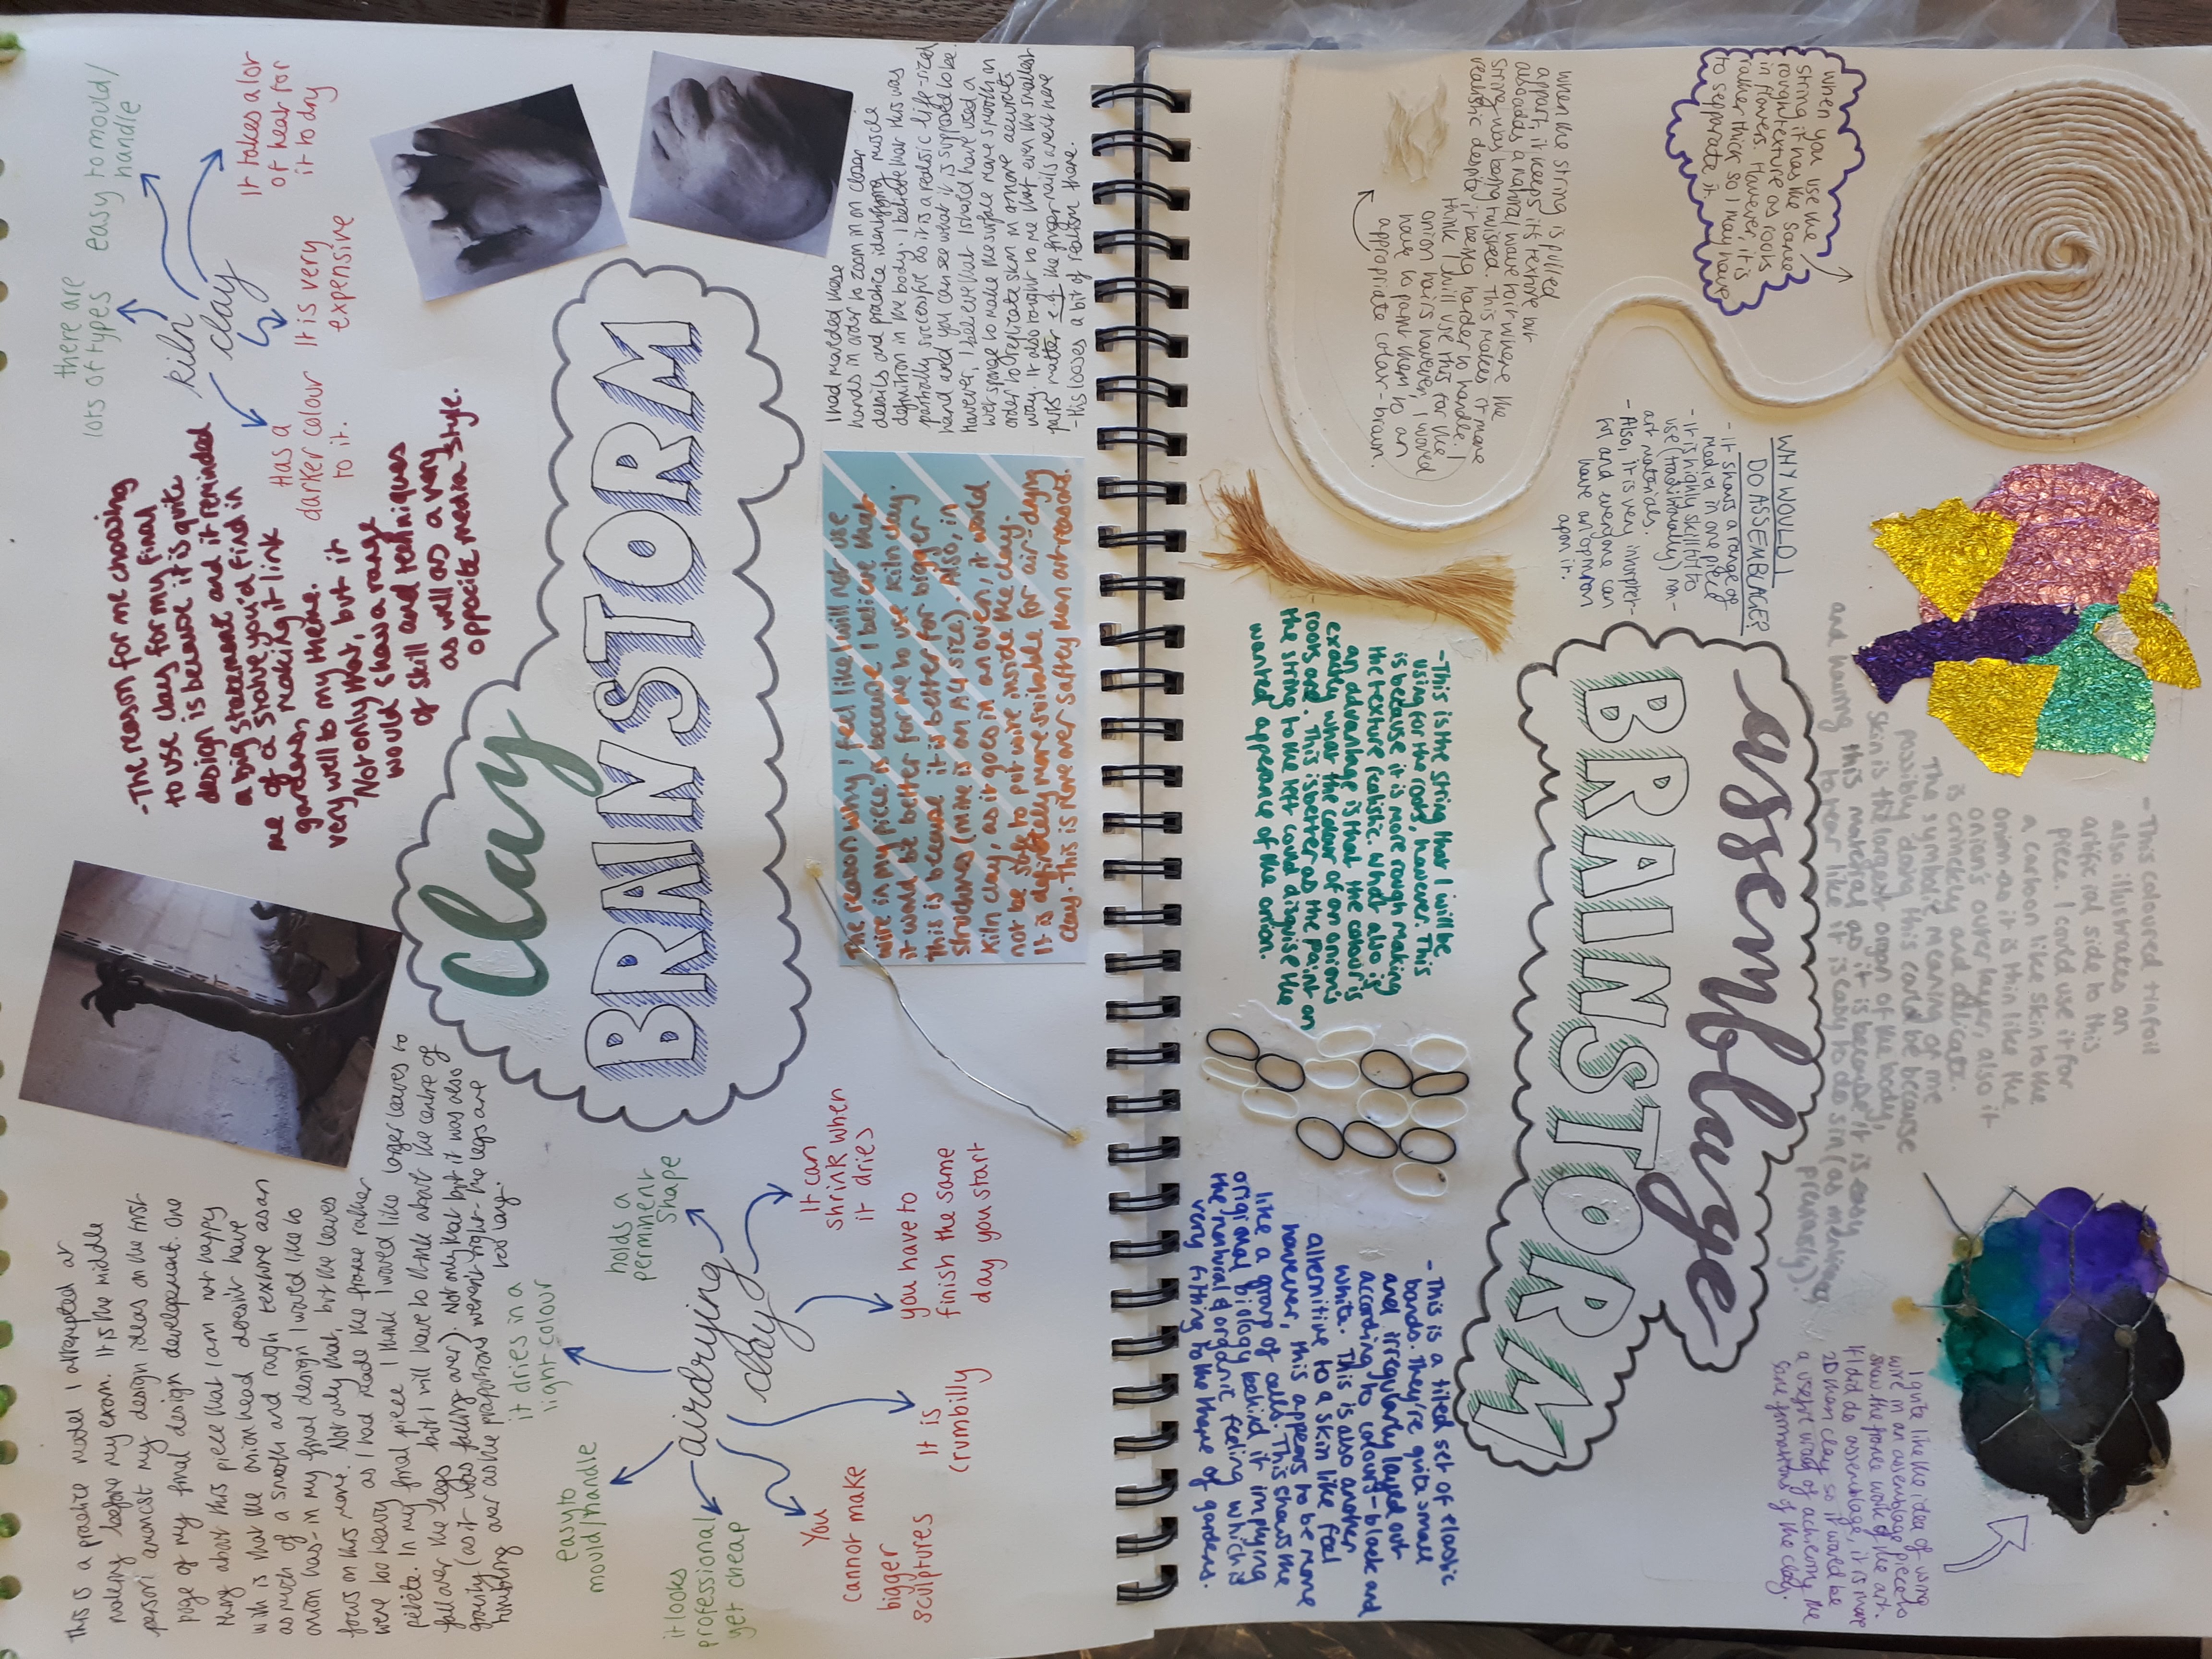 Clay
BRAINSTORM
kiln
clay
easy to mould/
handle
It takes alot
of heat for
it to dry
there are
lots of types
It is very
expensive
Has a
darker colour
to it.
-The reason for me choosing
to use clay for my final
design is because it is quite
a big statement and it reminded
me of a statue you'd find in
gardens, making it link
very well to my theme.
Not only that, but it
would show a range
of skill and techniques
as well as a very
opposite media style.
I had moulded these
hands in order to zoom in on closer
details and practice identifying muscle
definition in the body. I believe that this was
partially successful as it is a realistic life-sized
hand and you can see what it is supposed to be.
However, I believe that I should have used a
wet sponge to make the surface more smooth in
order to replicate skin in a more accurate
way. It also taught to me that even the smallest
parts matter e.g. the finger nails aren't here
-this looses a bit of realism there.
The reason why I feel like I will not use
wire in my piece is because I believe that
it would be better for me to use kiln clay.
This is because it is better for bigger
structures (mine is an A4 size). Also, in
kiln clay, as it goes in an oven, it would
not be safe to put wire inside the clay.
It is definitely more suitable for air-drying
clay. This is more over saftey than art reasons.
airdrying
clay
holds a
perminent
shape
It can
shrink when
it dries
you have to
finish the same
day you start
it dries in a
light colour
It is
crumbilly
easy to
mould/handle
You
cannot make
bigger
sculptures
it looks
professional
yet cheap
This is a practice model I attempted at
making before my exam. It is the middle
person amongst my design ideas on the first
page of my final design developement. One
thing about this piece that I am not happy
with is that the onion head doesn't have
as much of a smooth and rough texture as an
onion has- in my final design I would like to
focus on this more. Not only that, but the leaves
were too heavy as I had made the frame rather
petite. In my final piece I think I would like larger leaves to
fall over the legs but I will have to think about the centre of
gravity (as it was falling over). Not only that but it was also
humbling over as the proportions weren't right- the legs are
too long.
assemblage
BRAINSTORM
When you use the
string it has the same
rough texture as roots
in flowers. However, it is
rather thick so I may have
to separate it.
When the string is pulled
appart, it keeps its texture but
also adds a natural wave to it where the
string was being twisted. This makes it more
realistic despite it being harder to handle. I
think I will use this for the
onion hairs however, I would
have to paint them to an
appropiate colour - brown.
WHY WOULD I
DO ASSEMBLAGE?
- It shows a range of
media in one piece
- It is highly skillful to
use (traditionally) non-
art materials.
- Also, it is very interpret-
ful and everyone can
have an opinion
apon it.
-This is the string that I will be
using for the roots, however. This
is because it is more rough making
the texture realistic. What also is
an advantage is that the colour is
exactly what the colour of an onion's
roots are. This is better as the paint on
the string to the left could disguise the
wanted appearance of the onion.
-This coloured tinfoil
also illustrates an
artificial side to this
piece. I could use it for
a carton like skin to the
onion-as it is thin like the
onion's outer layer, also it
is crinckely and delicate.
The symbolic meaning of me
possibly doing this could be because
skin is the largest organ of the body,
and having this material as it is because it is easy
to tear like it is easy to do sin (as mentioned
previously).
- This is a tiled set of elastic
bands. They're quite small
and irregularly layed out
according to colours- black and
white. This is also another
alternitive to a skin like feel
however, this appears to be more
like a group of cells. This chains the
original biology behind it implying
the natural & organic feeling which is
very fitting to the theme of gardens.
I quite like the idea of using
wire in an assemblage piece to
show the frame work of the art.
If I do do assemblage, it is more
2D than clay so it would be
a useful way of achieving the
same formations of the clay.